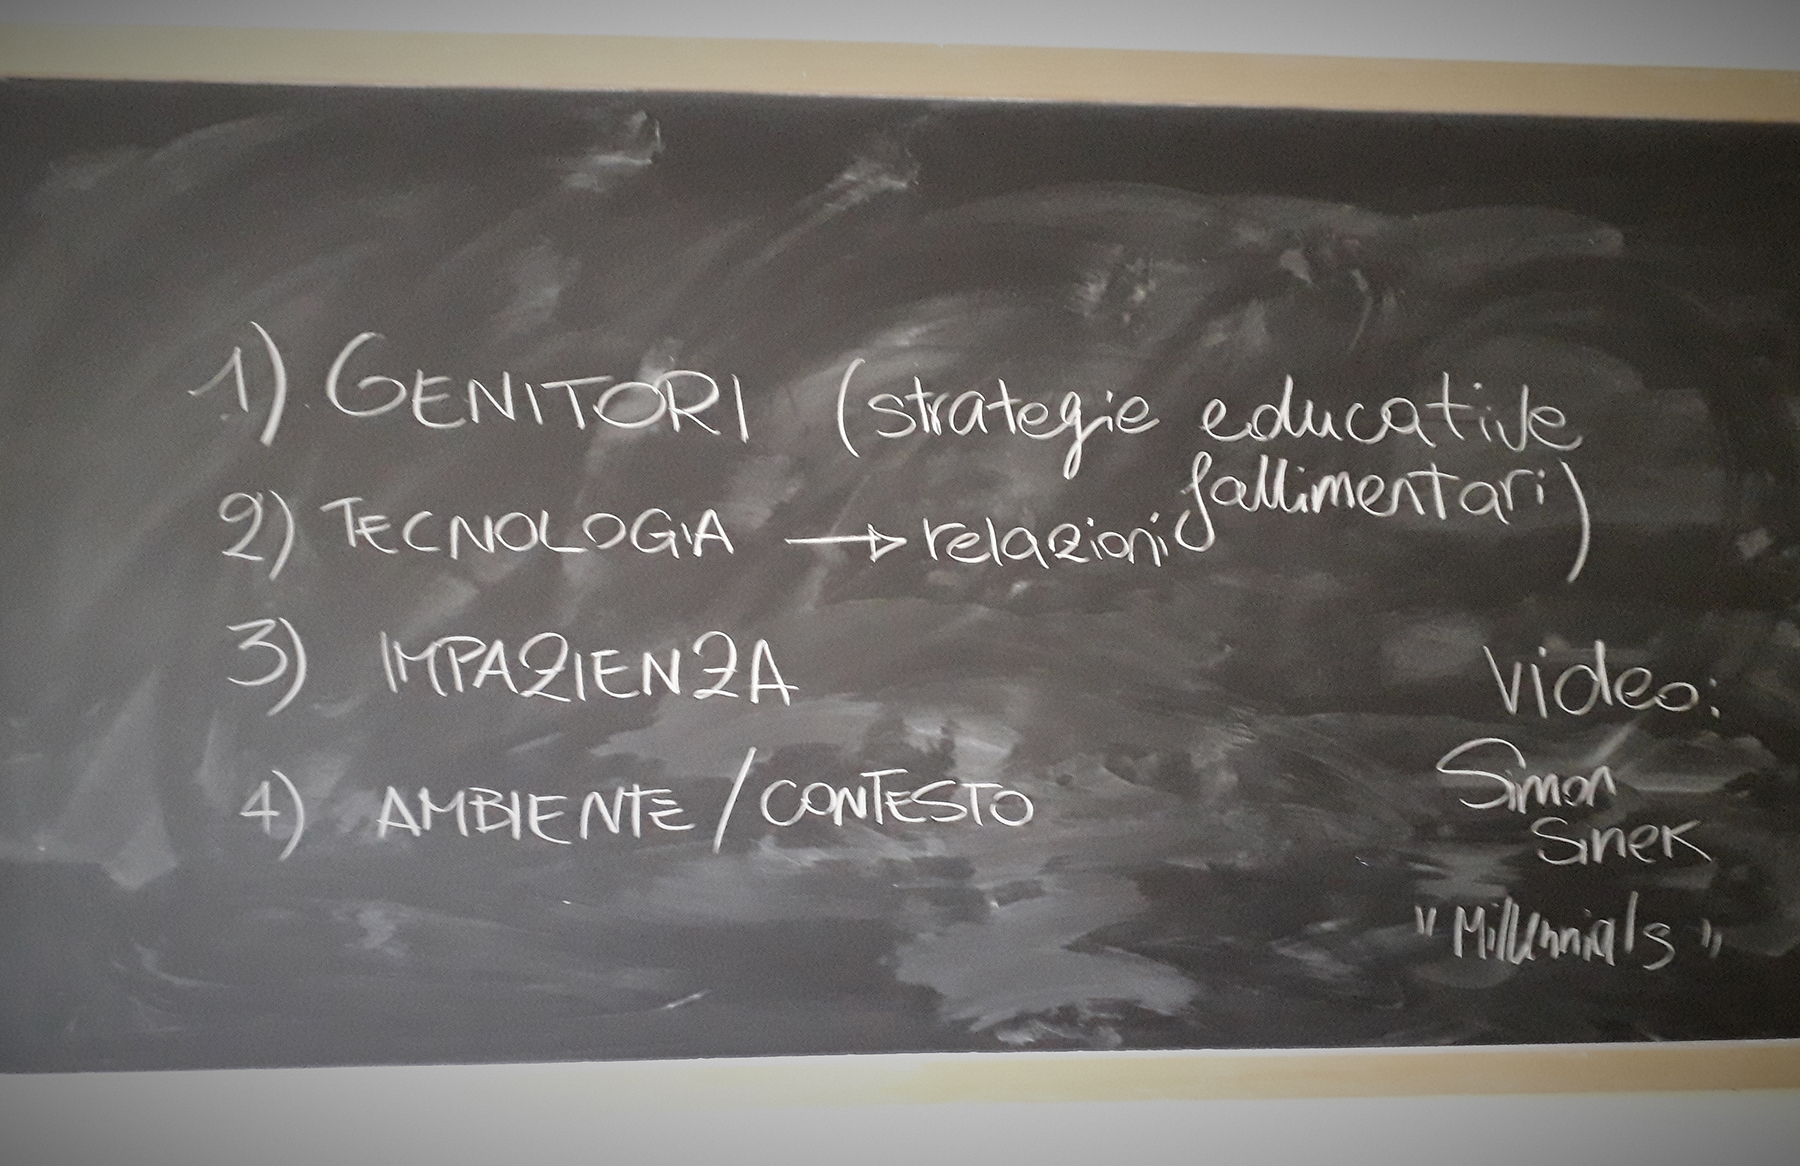 1) GENITORI (strategie educative
fallimentari)
2) TECNOLOGIA → relazioni
3) IMPAZIENZA
4) AMBIENTE / CONTESTO
Video:
Simon
Sinek
"Millennials"